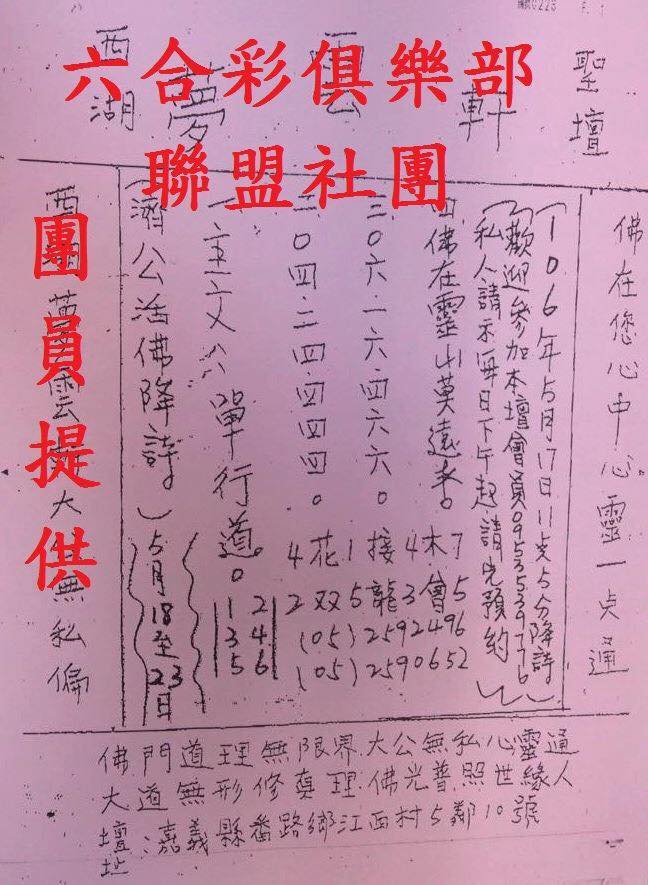 六合彩俱樂部
聯盟社團
團員提供
聖壇
西湖夢雲軒
佛在您心中心靈一点通
(106年5月17日11点5分降詩)
(歡迎參加本壇會員0953539776)
(私人請示每日下午起請先預約)
四佛在靈山莫遠求。
三〇六.一六.四六六〇。
二〇四.二四.四四四〇。
(主文八單行道。
(濟公活佛降詩)5月18至23日
木 7
4 會 5
3 2496
接 0652
1 龍
5 2592
花 2590
4 双
2 (05)
(05)
1 2
3 4
5 6
大無私偏
佛門道理無限界大公無私心靈通
大道無形修真理佛光普照世緣人
壇址:嘉義縣番路鄉江西村5鄰10號